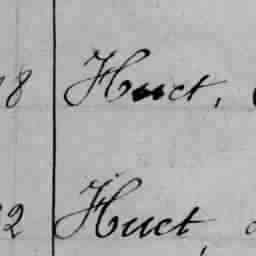 18 Huct,
22 Huct,